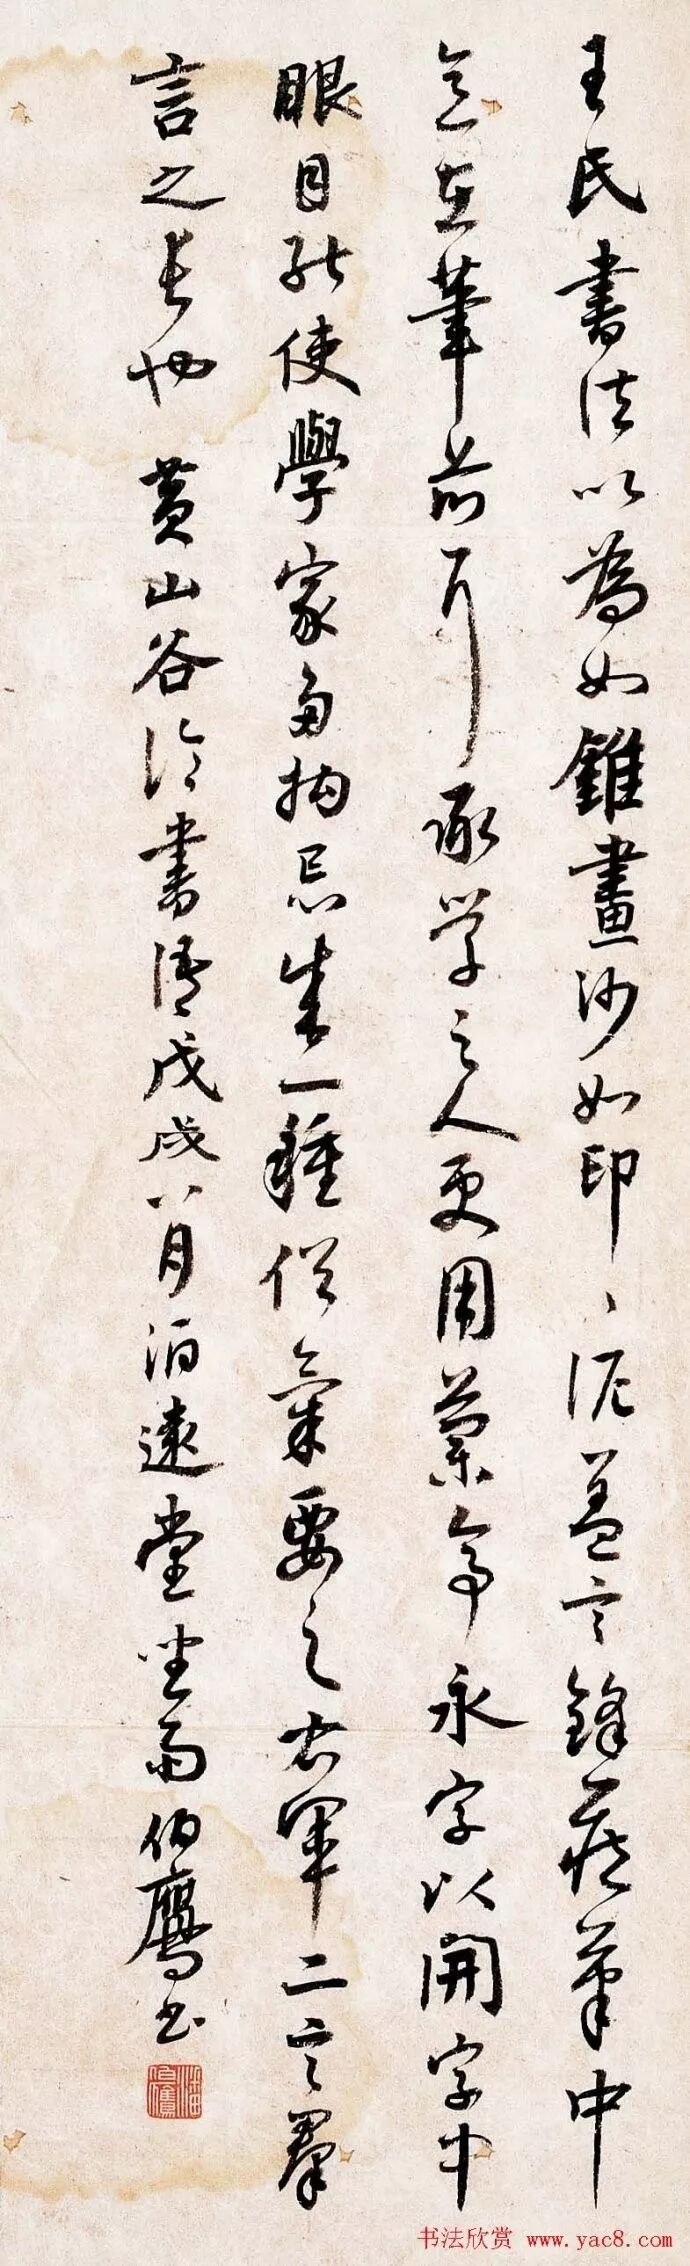 王氏書法以為如錐畫沙如印〻泥蓋言鋒藏筆中
意在筆前耳承學之人更用蘭亭永字以開字中
眼目能使學家多拘忌成一種俗氣要之右軍二言羣
言之長也 黃山谷論書語戊戌八月泊遠堂坐雨伯鷹書
潘伯鷹
书法欣赏 www.yac8.com